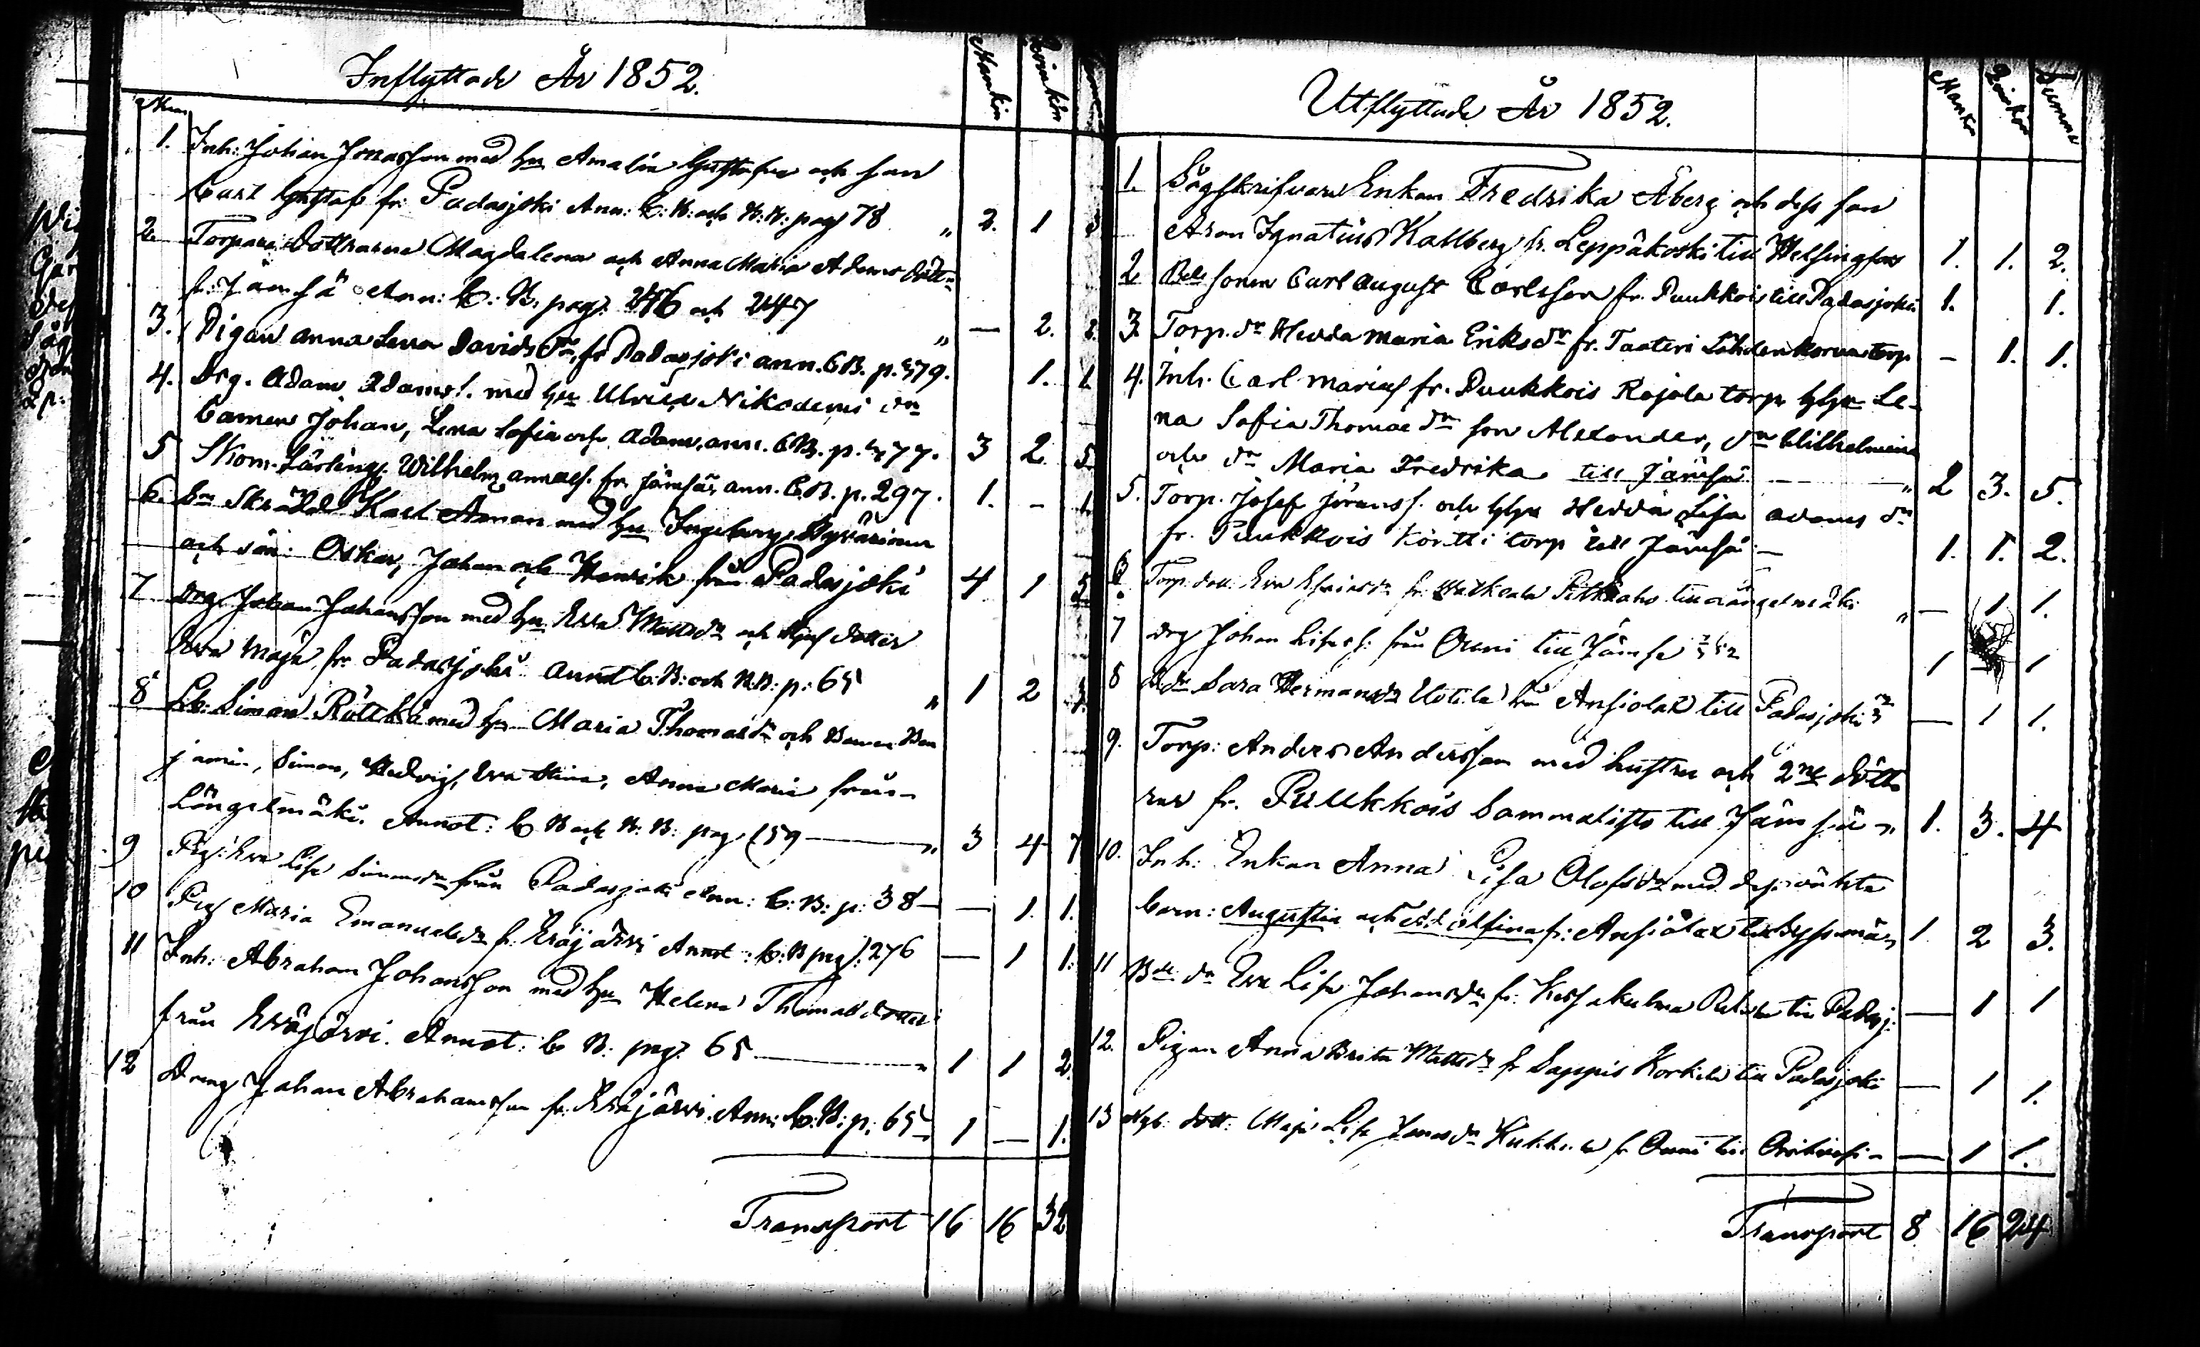 Inflyttade År 1852.
Mankön Qvinkön
1. Inh: Johan Jonasson med hu Amalia Gustafva och son
Carl Gustaf fr: Padasjoki Ann: C: B: och N: B: pag 78 " 2. 1 3
2. Torpare Döttrarna Magdalena och Anna Maria Adams döttr
fr: Jämsä Ann: C: B: pag: 246 och 247 " — 2. 2.
3. Pigan Anna Lena Davids dr fr Padasjoki ann. CB. p. 579. 1. 1.
4. Drg. Adam Adams s. med hu Ulrica Nikodemi dr
Barnen Johan, Lena Sofia och Adam, ann. CB. p. 477. 3 2. 5.
5 Skom. Lärling Wilhelm fr. Jämsä, ann. C.B. p. 297. 1. - 1.
6. Karl Aaman med hu Ingeborg
och sön: Oskar, Johan och Henrik från Padasjoki 4 1 5.
7 Drg. Johan Johansson med hu Eva Matts dr och dotter
Eva Maja fr. Padasjoki annot C: B: och N.B: p: 65 " 1 2 3.
8 Simon Rottka med hu Maria Thomas dr och Barnen Ben
jamin, Simon, Hedvig, Eva Stina, Anna Maria från
Längelmäki. Annot: C B och N: B: pag: 159 — " 3 4 7
9 Pig: Eva Lisa Simons dr från Padasjoki Ann: C: B: p: 38 — — 1. 1.
10 Pig Maria Emanuels dr fr: Eräjärvi Annot: C: B pag: 276 — 1 1.
11 Inh: Abraham Johansson med hu Helena Thomas dotter
från Eräjärvi. Annot: C B: pag: 65 — " 1 1 2.
12 Dreng Johan Abrahamsson fr. Eräjärvi. Ann: C: B: p: 65 — 1 — 1.
Transport 16 16 32
Utflyttade År 1852.
Mankön Qvinkön Summa
1. Enkan Fredrika Åberg och dess son
Aron Ignatius Kallberg fr. Leppäkoski till Helsingfors 1. 1. 2.
2 Bdesonen Carl August Carlsson fr. Puukkois till Padasjoki 1. 1.
3. Torp. dr Hedda Maria Eriks dr fr. Taateri Lähdenkorva torp — 1. 1.
4. Inh. Carl Mariaes fr. Puukkois Rajala torp hust Le-
na Sofia Thomae dr son Alexander, dr Wilhelmina
och dr Maria Fredrika till Jämsä — " 2 3. 5.
5. Torp. Josef Jöranss. och hust Hedda Lisa Adams dr
fr. Puukkois Köntti torp till Jämsä — 1. 1. 2.
6. Torp. dott. Eva fr. till Längelmäki " — 1 1.
7 Drg Johan från Ouni till Jämsä 1 — 1
8 Sara Hermans dr Uotila från Ansiolax till Padasjoki — 1 1.
9. Torp: Anders Andersson med hustru och 2ne dött
rar fr. Puukkois Sammalisto till Jämsä " 1. 3. 4
10. Inh: Enkan Anna Lisa Olofs dr med dess oäkta
barn: Augusta och fr: Ansiolax till 1 2 3.
11 Bde dr Eva Lisa Johans dr fr: till Padasj: — 1 1
12. Pigan Anna Brita Matts dr fr Sappis Korkila till Padasjoki — 1 1.
13 dott. Maja Lisa Jonas dr fr Ouni till Orihvesi — — 1 1.
Transport 8 16 24